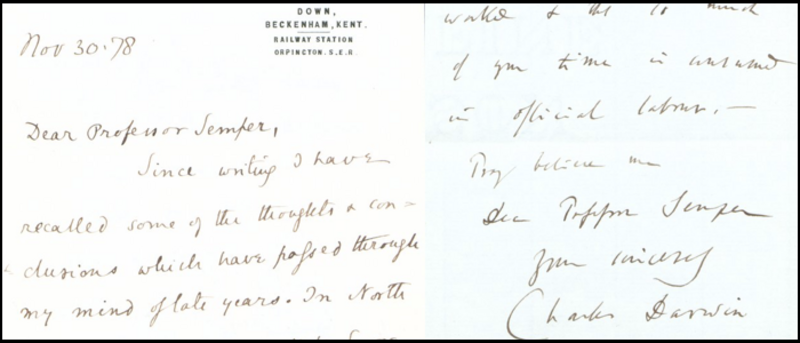 DOWN,
BECKENHAM, KENT.
RAILWAY STATION
ORPINGTON. S.E.R.
Nov 30. 78
Dear Professor Semper,
Since writing I have
recalled some of the thoughts & con=
clusions which have passed through
my mind of late years. In North
worked & that so much
of your time is consumed
in official labour. —
Pray believe me
Dear Professor Semper
Yours sincerely
Charles Darwin